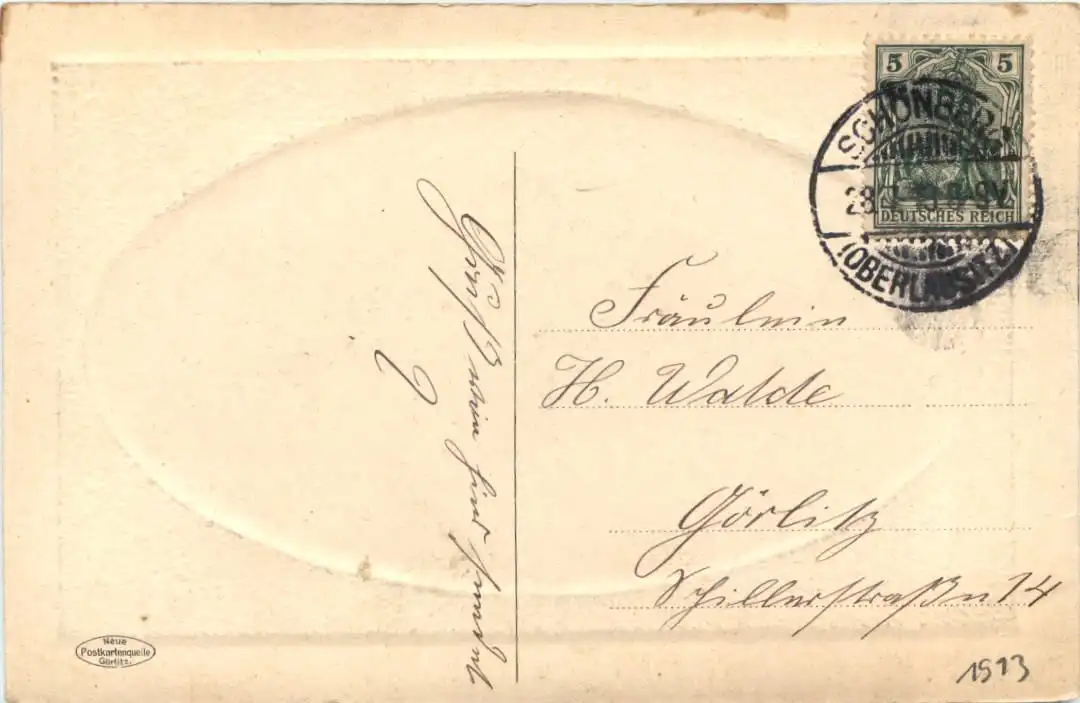 5 5
DEUTSCHES REICH
SCHÖNBERG
28.7.13.8-9V.
(OBERLAUSITZ)
Fräulein
H. Walde
Görlitz
Schillerstraße 14
Neue
Postkartenquelle
Görlitz.
1913